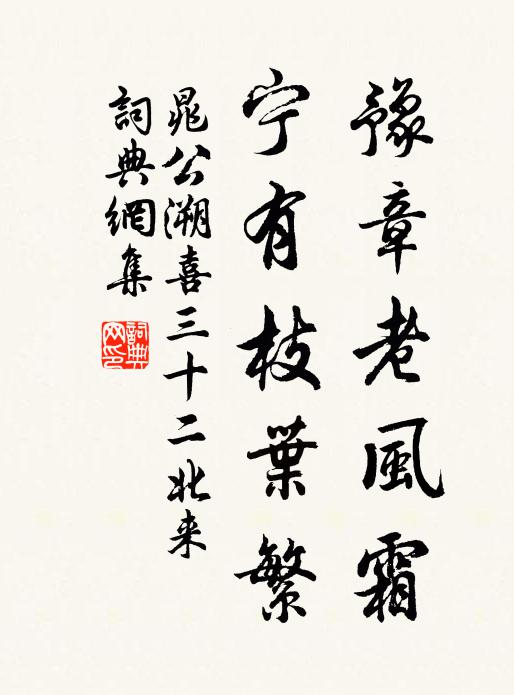 豫章老風霜
宁有枝葉繁
晁公溯喜三十二北来
詞典網集
詞典網印